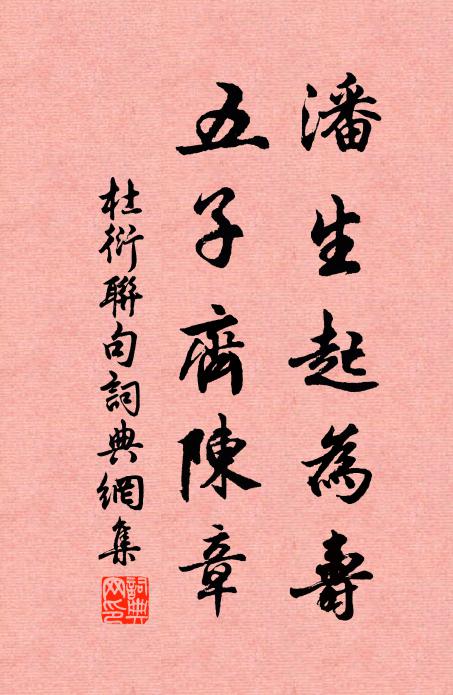 潘生起為壽
五子齊陳章
杜衍聯句詞典網集